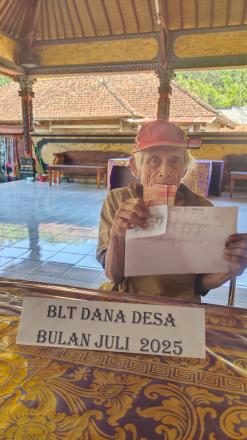 BLT DANA DESA
BULAN JULI 2025